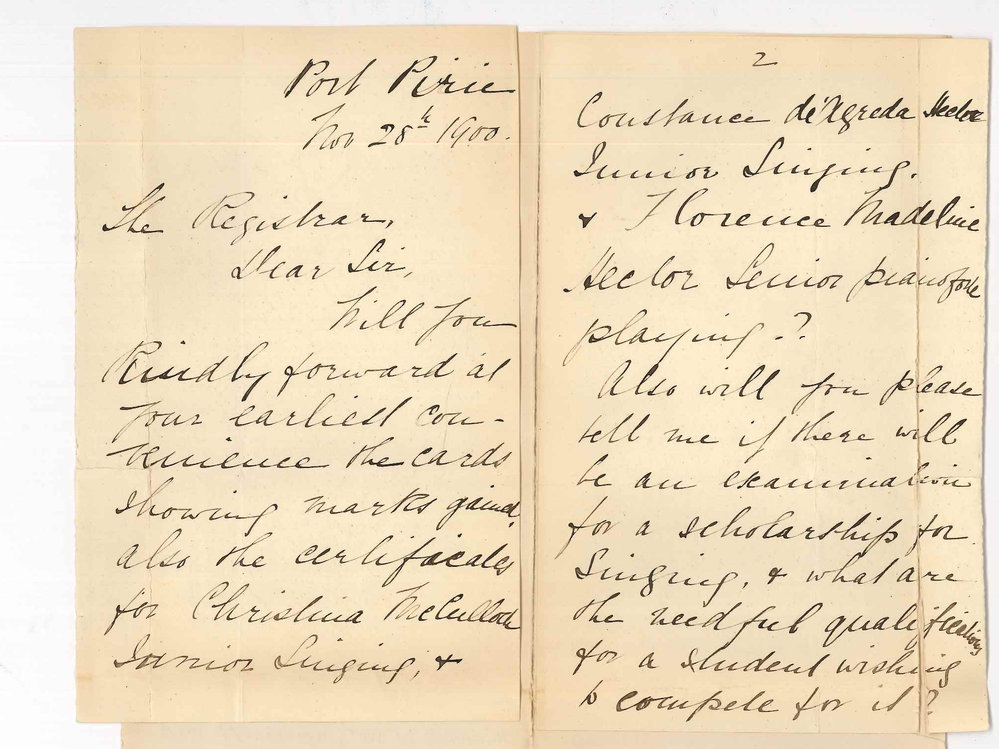 Port Pirie
Nov 28th 1900.
The Registrar,
Dear Sir,
Will you
Kindly forward at
your earliest con-
venience the cards
showing marks gained,
also the certificates
for Christina McCulloch
Junior Singing, &
2
Constance de'Agreda Hector
Junior Singing.
& Florence Madeline
Hector Senior pianoforte
playing.?
Also will you please
tell me if there will
be an examination
for a scholarship for
Singing, & what are
the needful qualifications
for a student wishing
to compete for it?